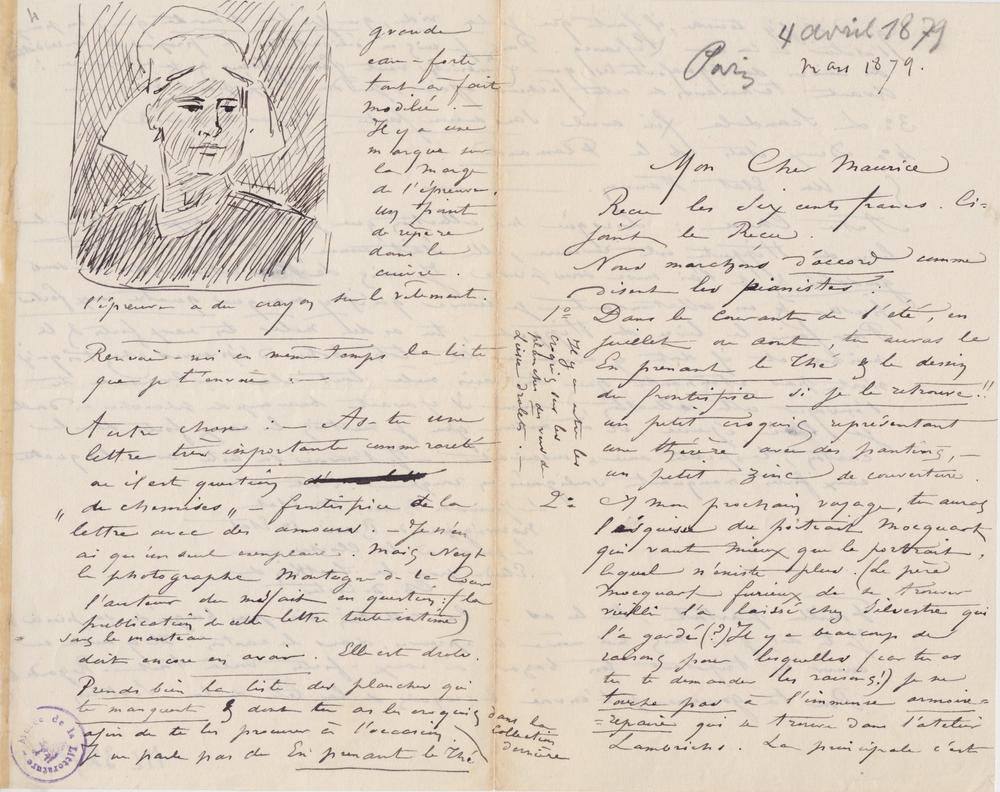 4 avril 1879
Paris mars 1879.
Mon Cher Maurice
Reçu les six cents francs. Ci-
joint le Reçu.
Nous marchons d'accord comme
disent les pianistes :
1º Dans le courant de l'été, en
juillet ou aout, tu auras le
En prenant le Thé & le dessin
du frontispice si je le retrouve !!
un petit croquis représentant
une théière avec des pantins, –
un petit zinc de couverture.
2º A mon prochain voyage, tu auras
l'esquisse du portrait Mocquart
qui vaut mieux que le portrait,
lequel n'existe plus. (Le père
Mocquart furieux de se trouver
vieilli l'a laissé chez Silvestre qui
l'a gardé (?) Il y a beaucoup de
raisons pour lesquelles (car tu as
tu te demander les raisons !) je ne
touche pas à l'immense armoire =
= repaire qui se trouve dans l'atelier
Lambrichs. La principale c'est
Il y a entre les
croquis sur les
planches des
d'assez droles. –
grande
eau-forte
tout à fait
modifié. –
Il y a une
marque sur
la marge
de l'épreuve,
un point
de repère
dans le
cuivre.
l'épreuve a du crayon sur le vêtement.
Renvoie-moi en même temps la liste
que je t'envoie : –
Autre chose : – As-tu une
lettre très importante comme rareté
où il est question
„ de chemises „ – frontispice de la
lettre avec des amours. – Je n'en
ai qu'un seul exemplaire. Mais Neyt
le photographe Montagne de la Cour
l'auteur du méfait en question : (la
publication de cette lettre toute intime)
sous le manteau
doit encore en avoir. Elle est drole.
Prends bien la liste des planches qui
te manquent & dont tu as les croquis
afin de te les procurer à l'occasion
Je ne parle pas de En prenant le Thé
dans la
collection
dernière